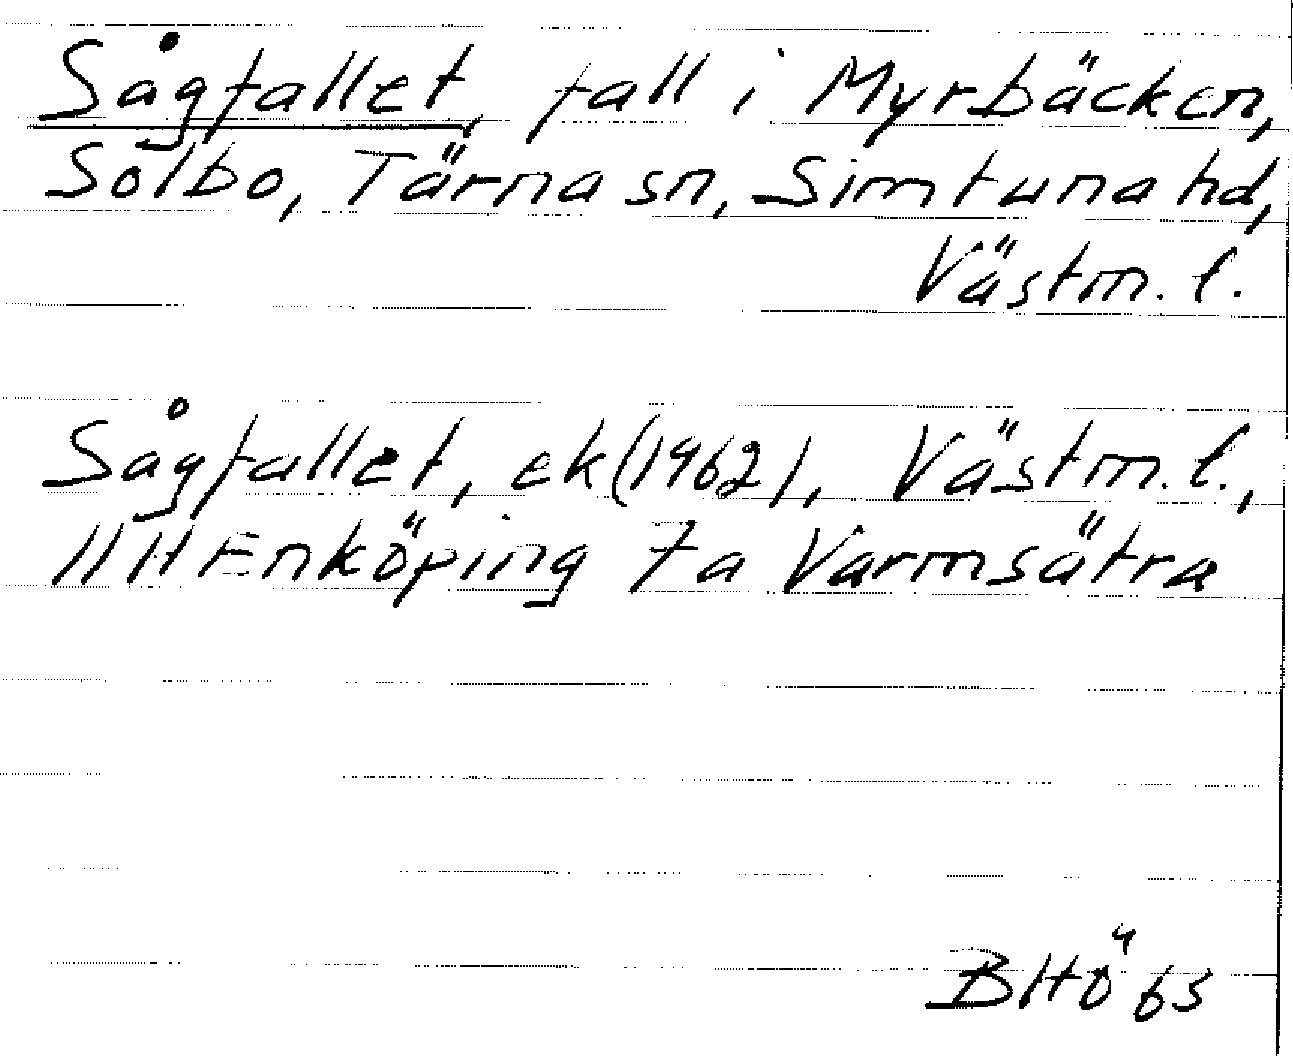 Sågfallet, fall i Myrbäcken,
Solbo, Tärna sn, Simtuna hd,
Västm. l.
Sågfallet, ek (1962), Västm. l.,
11 H Enköping 7a Varmsätra
BHö 63